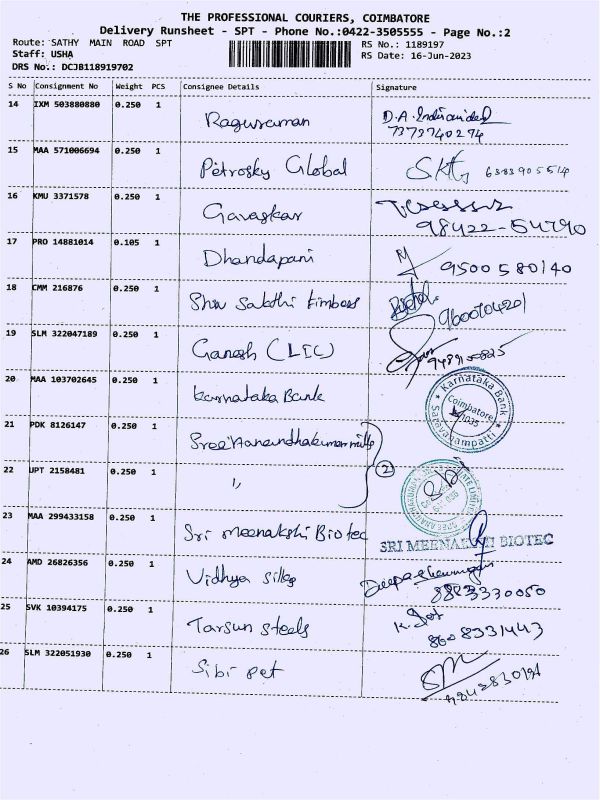 THE PROFESSIONAL COURIERS, COIMBATORE
Delivery Runsheet - SPT - Phone No.:0422-3505555 - Page No.:2
Route: SATHY MAIN ROAD SPT
RS No.: 1189197
Staff: USHA
RS Date: 16-Jun-2023
DRS No.: DCJB118919702
S No Consignment No Weight PCS Consignee Details Signature
14 IXM 503880880 0.250 1 Raguraman D.A.
7373740274
15 MAA 571006694 0.250 1 Petrosky Global 6383905514
16 KMU 3371578 0.250 1 Gavaskar
98422-54790
17 PRO 14881014 0.105 1 Dhandapani 9500580140
18 CMM 216876 0.250 1 Shri Sakthi timbers 9600704201
19 SLM 322047189 0.250 1 Ganesh (LIC)
20 MAA 103702645 0.250 1 Karnataka Bank
Karnataka Bank
Coimbatore
Sathyamangalam
21 PDK 8126147 0.250 1 Sree Anandhakumar mills
2
22 UPT 2158481 0.250 1 "
23 MAA 299433158 0.250 1 Sri Meenakshi Biotec SRI MEENAKSHI BIOTEC
24 AMD 26826356 0.250 1 Vidhya silks
8883330050
25 SVK 10394175 0.250 1 Tarsun steels
8608331443
26 SLM 322051930 0.250 1 Sibi pet
9842830191